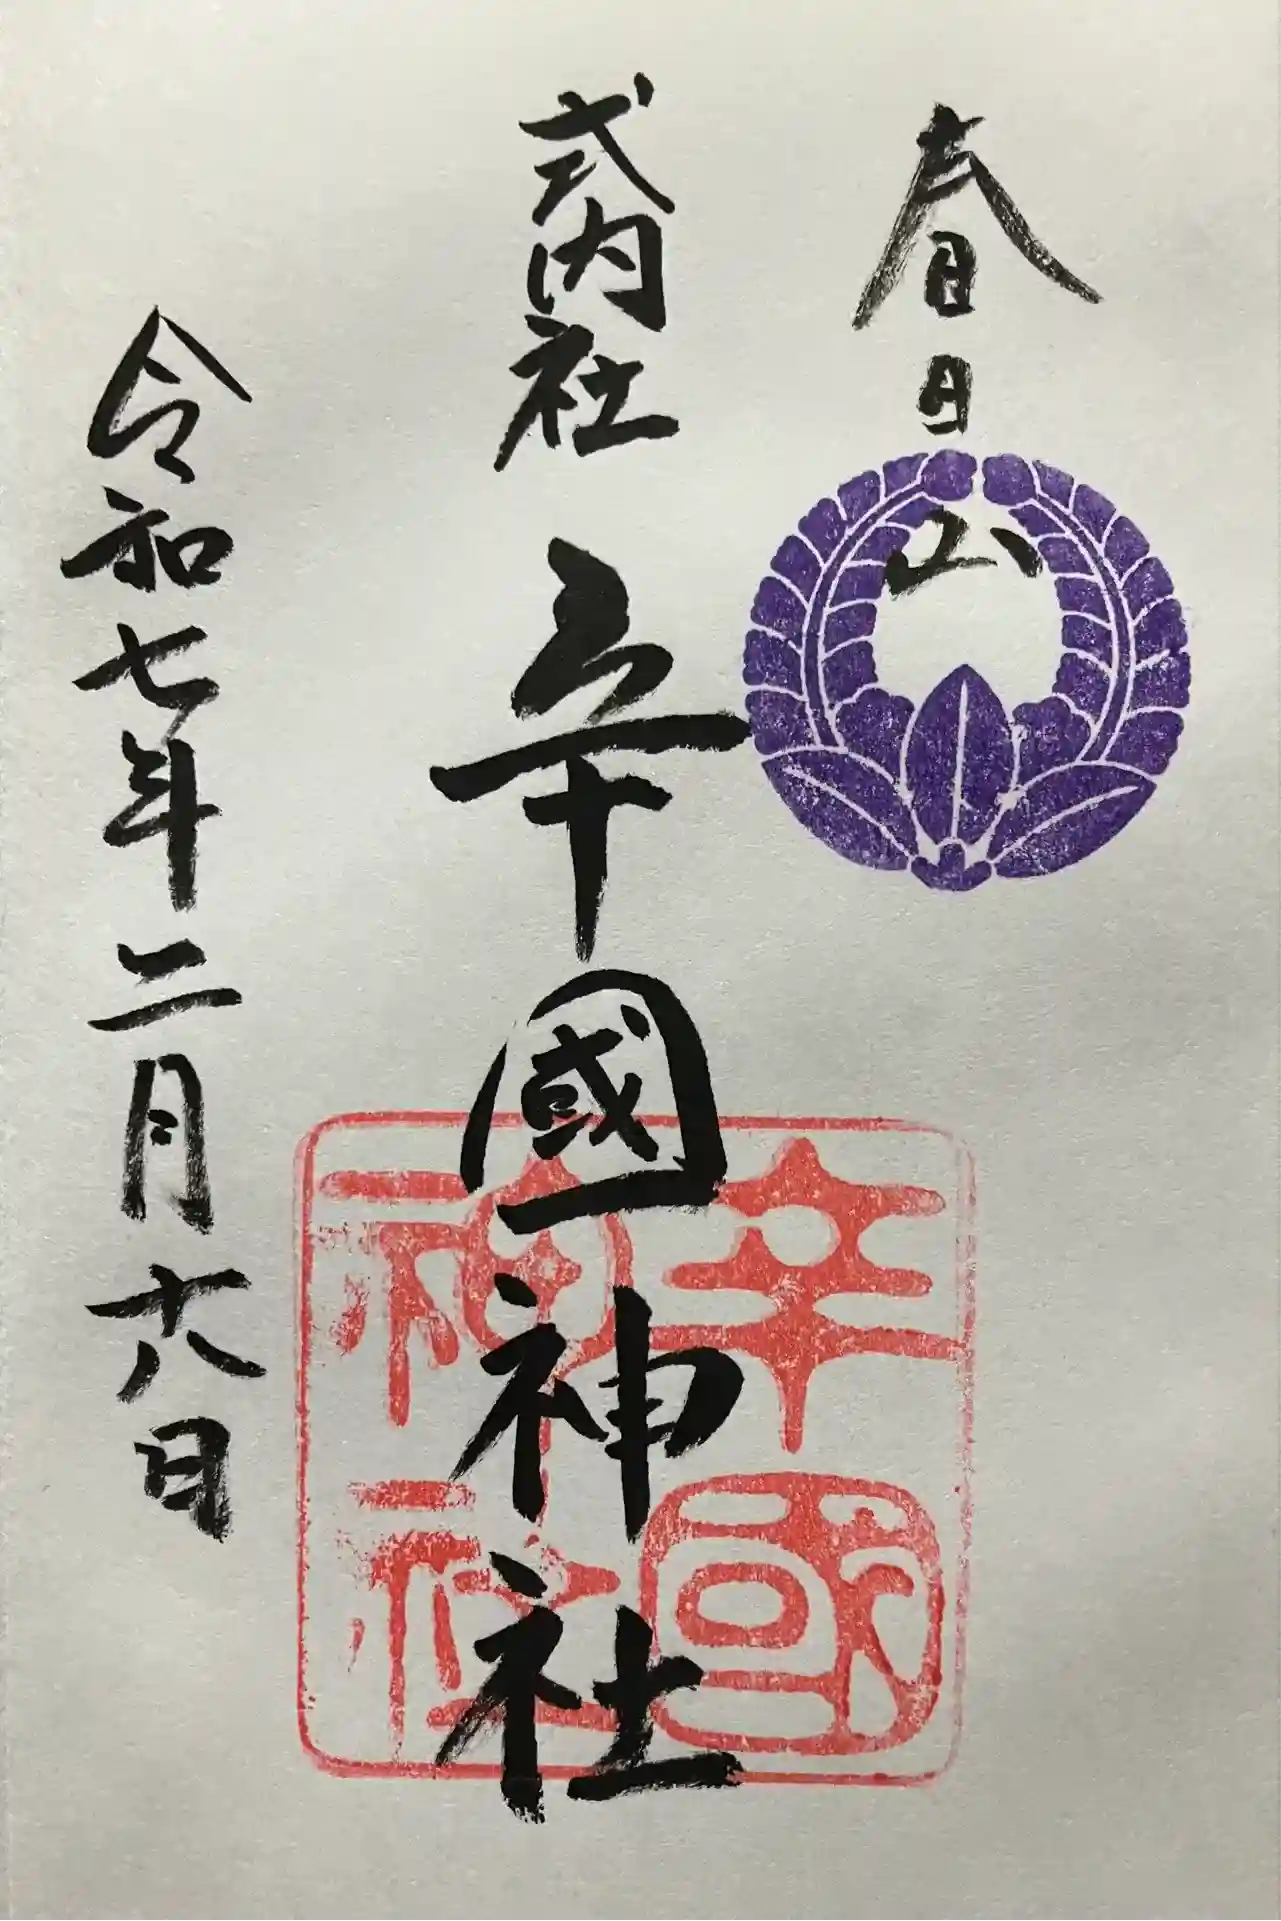 春日山
式内社 辛國神社
令和七年二月十八日
辛國
神社